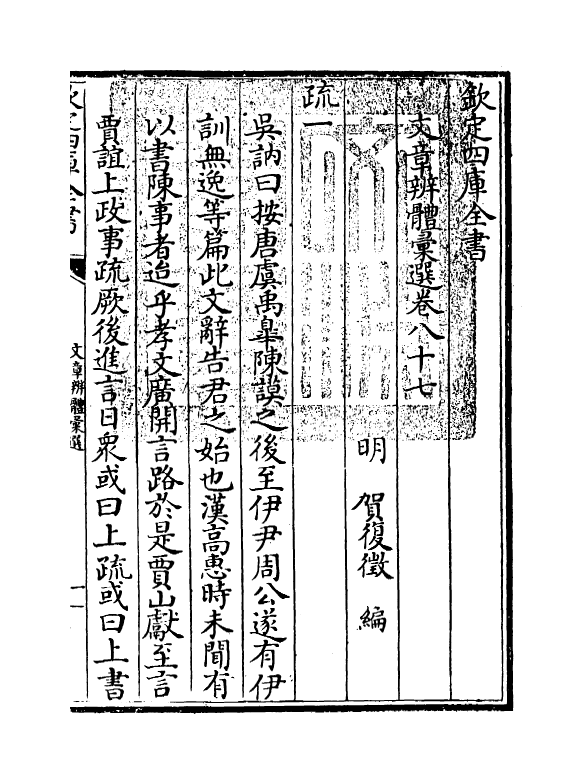 欽定四庫全書
文章辨體彙選卷八十七
明 賀復徵 編
疏一
吳訥曰按唐虞禹臯陳謨之後至伊尹周公遂有伊
訓無逸等篇此文辭告君之始也漢高惠時未聞有
以書陳事者迨乎孝文廣開言路於是賈山獻至言
賈誼上政事疏厥後進言日衆或曰上疏或曰上書
欽定四庫全書
文章辨體彙選
一